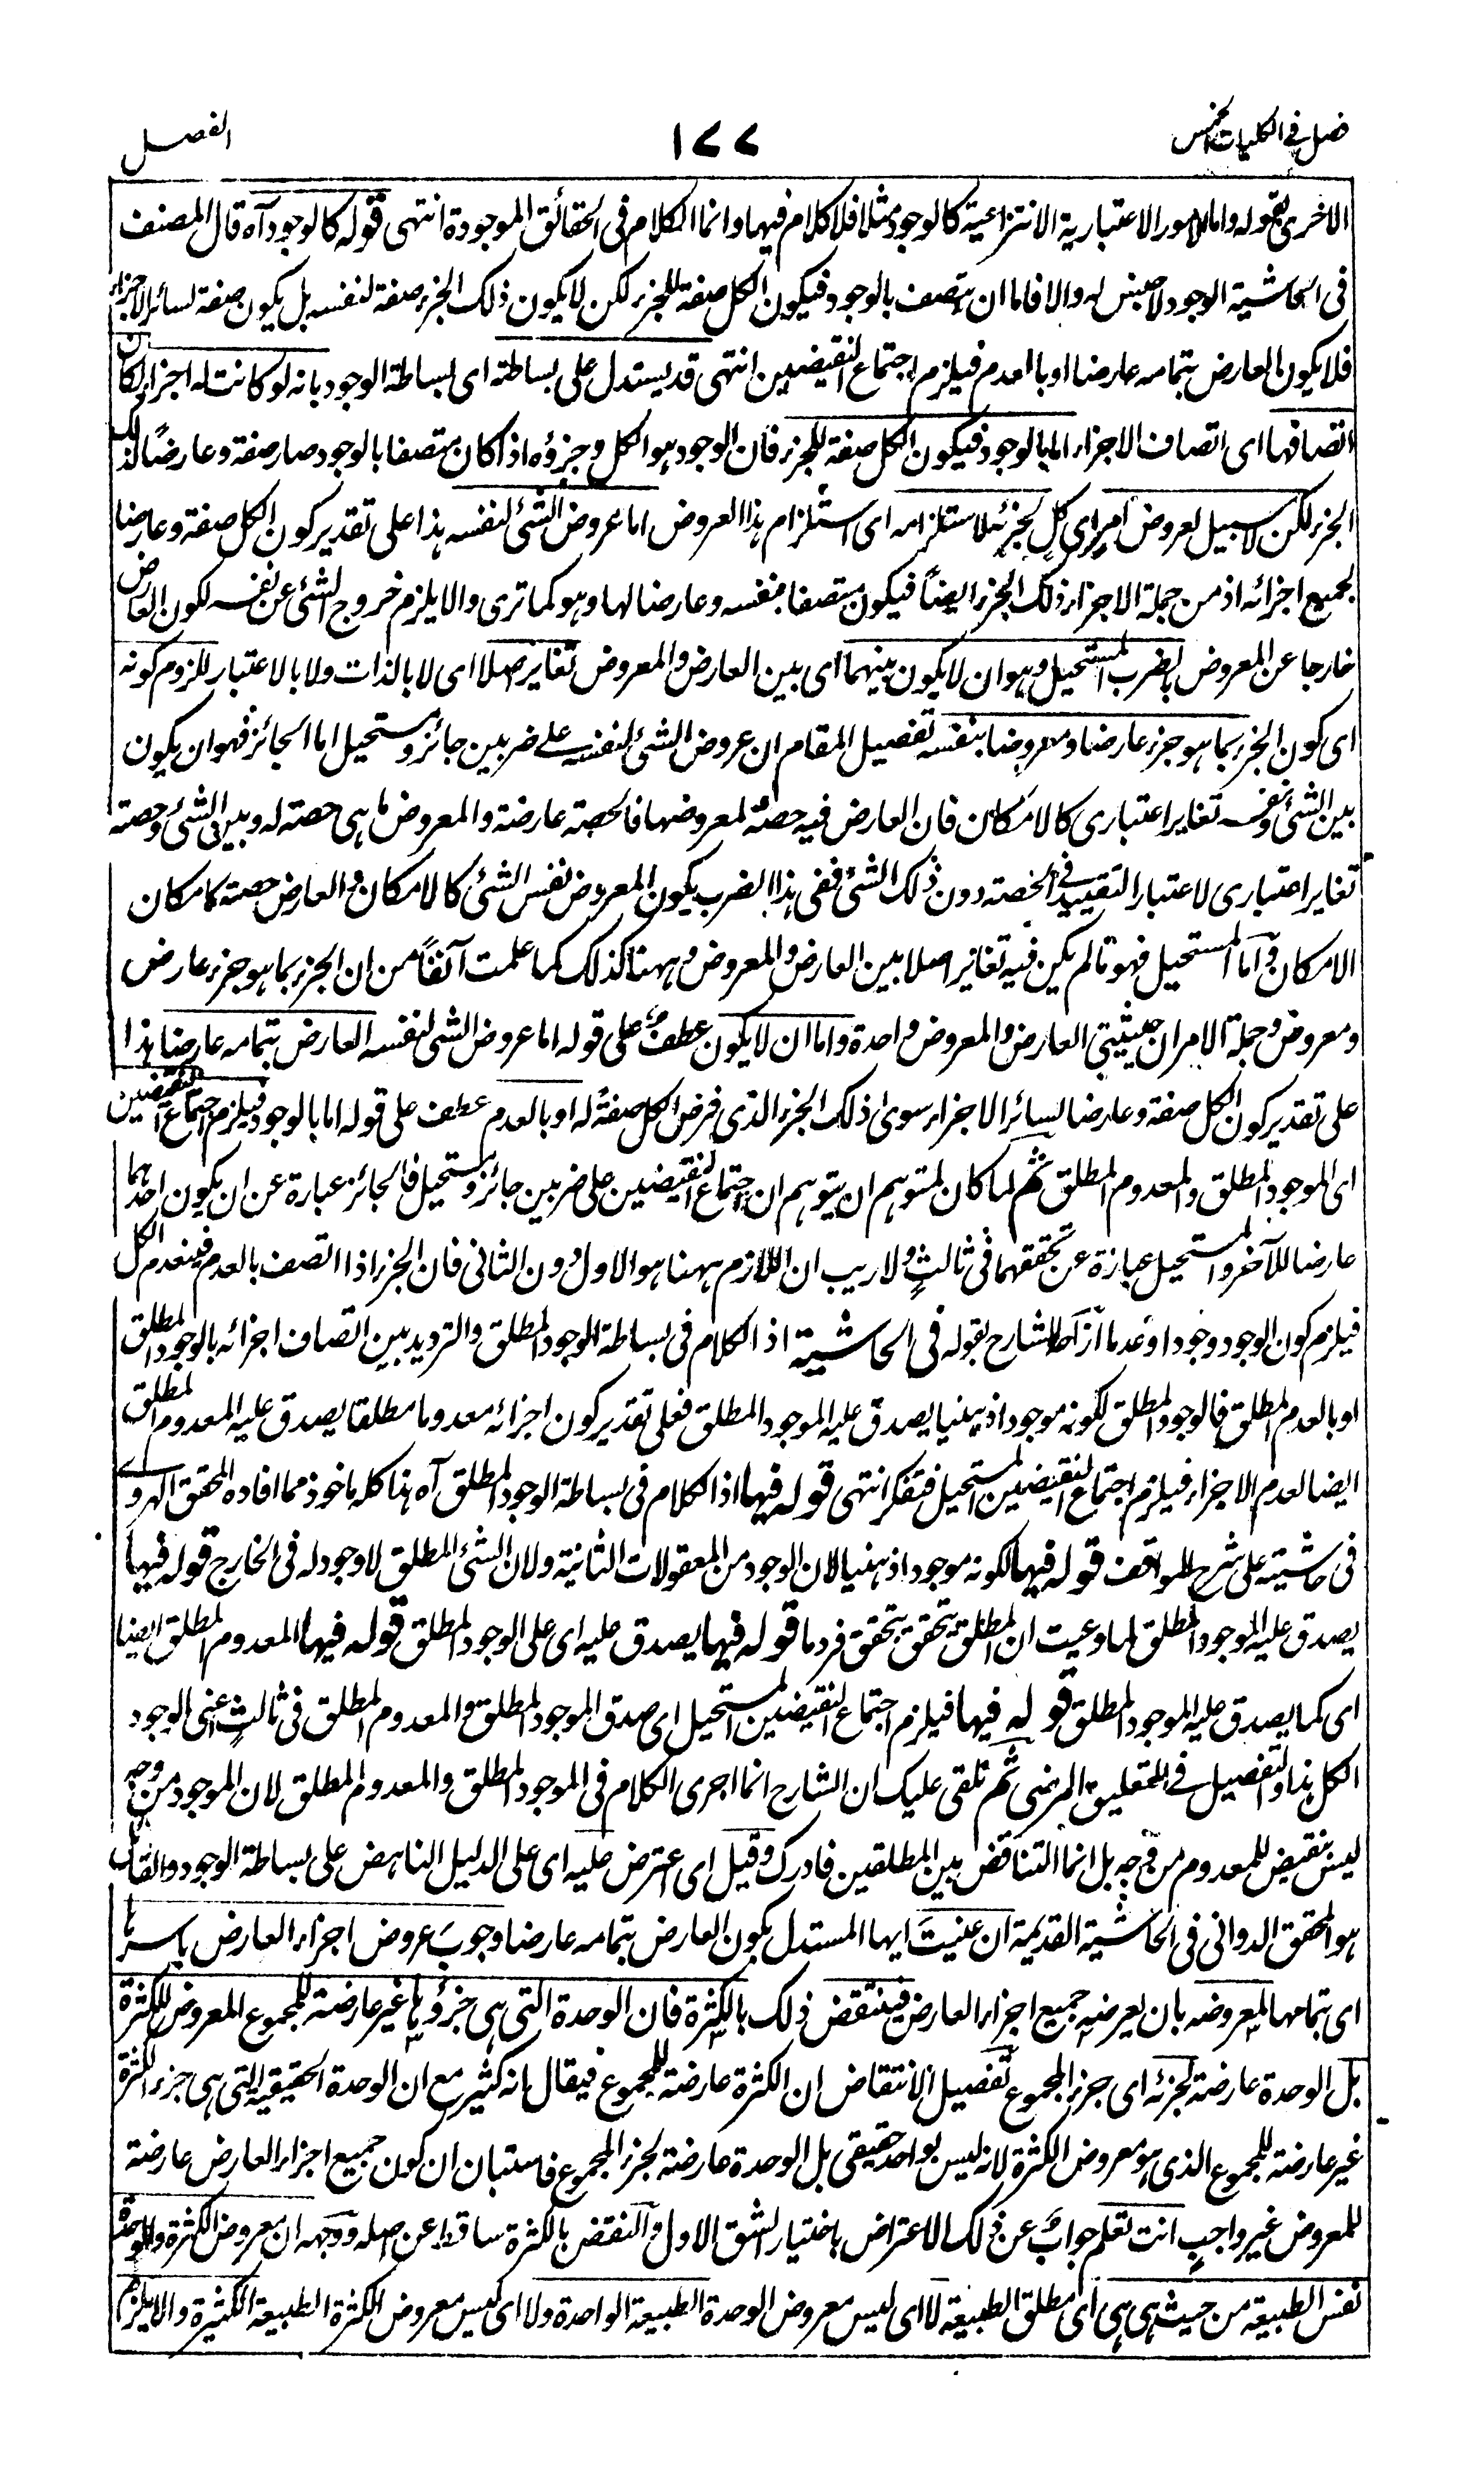 فصل في الكليات الخمس
١٧٧
الفصل
الاخرى بقوله واما الامور الاعتبارية الانتزاعية كالوجود مثلا فلا كلام فيها وانما الكلام فى الحقائق الموجودة انتهى قوله كالوجود آه قال المصنف
فى الحاشية الوجود لا جنس له والا فاما ان يتصف بالوجود فيكون الكل صفة للجزء لكن لا يكون ذلك الجزء صفة لنفسه بل يكون صفة لسائر الاجزاء
فلا يكون العارض بتمامه عارضا او بالعدم فيلزم اجتماع النقيضين انتهى قد يستدل على بساطته اى بساطة الوجود بانه لو كانت له اجزاء لكان
اتصافها اى اتصاف الاجزاء اما بالوجود فيكون الكل صفة للجزء فان الوجود هو الكل وجزؤه اذا كان متصفا بالوجود صار صفة وعارضًا لذلك
الجزء لكن لا سبيل لعروض امرٍ اى كلٍ لجزئه لاستلزامه اى استلزام هذا العروض اما عروض الشئ لنفسه هذا على تقدير كون الكل صفة وعارضا
لجميع اجزائه اذ من جملة الاجزاء ذلك الجزء ايضًا فيكون متصفا بنفسه وعارضا لها وهو كما ترى والا يلزم خروج الشئ عن نفسه لكون العارض
خارجا عن المعروض بالضرب المستحيل وهو ان لا يكون بينهما اى بين العارض والمعروض تغاير اصلا اى لا بالذات ولا بالاعتبار للزوم كونه
اى كون الجزء بما هو جزء عارضا ومعروضا بنفسه تفصيل المقام ان عروض الشئ لنفسه على ضربين جائز ومستحيل اما الجائز فهو ان يكون
بين الشئ ونفسه تغاير اعتبارى كالامكان فان العارض فيه حصة لمعروضها فالحصة عارضة والمعروض ما هى حصة له وبين الشئ وحصته
تغاير اعتبارى لاعتبار التقييد فى الحصة دون ذلك الشئ ففى هذا الضرب يكون المعروض نفس الشئ كالامكان والعارض حصة كامكان
الامكان واما المستحيل فهو ما لم يكن فيه تغاير اصلا بين العارض والمعروض وههنا كذلك كما علمت آنفًا من ان الجزء بما هو جزء عارض
ومعروض وجملة الامر ان حيثيتى العارض والمعروض واحدة واما ان لا يكون عطف على قوله اما عروض الشئ لنفسه العارض بتمامه عارضا هذا
على تقدير كون الكل صفة وعارضا لسائر الاجزاء سوى ذلك الجزء الذى فرض الكل صفة له او بالعدم عطف على قوله اما بالوجود فيلزم اجتماع النقيضين
اى الموجود المطلق والمعدوم المطلق ثم لما كان لمتوهم ان يتوهم ان اجتماع النقيضين على ضربين جائز ومستحيل فالجائز عبارة عن ان يكون احدهما
عارضا للآخر والمستحيل عبارة عن تحققهما فى ثالثٍ ولا ريب ان اللازم ههنا هو الاول دون الثانى فان الجزء اذا اتصف بالعدم فينعدم الكل
فيلزم كون الوجود وجودا وعدما ازاحه الشارح بقوله فى الحاشية اذ الكلام فى بساطة الوجود المطلق والترديد بين اتصاف اجزائه بالوجود المطلق
او بالعدم المطلق فالوجود المطلق لكونه موجودا ذهنيا يصدق عليه الموجود المطلق فعلى تقدير كون اجزائه معدوما مطلقا يصدق عليه المعدوم المطلق
ايضا لعدم الاجزاء فيلزم اجتماع النقيضين المستحيل فتفكر انتهى قوله فيها اذ الكلام فى بساطة الوجود المطلق آه هذا كله ماخوذ مما افاده المحقق الهروى
فى حاشيته على شرح المواقف قوله فيها لكونه موجودا ذهنيا لان الوجود من المعقولات الثانية ولان الشئ المطلق لا وجود له فى الخارج قوله فيها
يصدق عليه الموجود المطلق لما وعيت ان المطلق يتحقق بتحقق فرد ما قوله فيها يصدق عليه اى على الوجود المطلق قوله فيها المعدوم المطلق ايضا
اى كما يصدق عليه الموجود المطلق قوله فيها فيلزم اجتماع النقيضين المستحيل اى صدق الموجود المطلق والمعدوم المطلق فى ثالثٍ اعنى الوجود
الكل هذا والتفصيل فى التعليق المرضى ثم تلقى عليك ان الشارح انما اجرى الكلام فى الموجود المطلق والمعدوم المطلق لان الموجود من وجه
ليس بنقيض للمعدوم من وجه بل انما التناقض بين المطلقين فادرك وقيل اى اعترض عليه اى على الدليل الناهض على بساطة الوجود والقائل
هو المحقق الدوانى فى الحاشية القديمة ان عنيتَ ايها المستدل بكون العارض بتمامه عارضا وجوبَ عروض اجزاء العارض باسرها
اى بتمامها لمعروضه بان يعرضه جميع اجزاء العارض فينتقض ذلك بالكثرة فان الوحدة التى هى جزؤها غير عارضة للمجموع المعروض للكثرة
بل الوحدة عارضة لجزئه اى جزء المجموع تفصيل الانتقاض ان الكثرة عارضة للمجموع فيقال انه كثير مع ان الوحدة الحقيقية التى هى جزء الكثرة
غير عارضة للمجموع الذى هو معروض الكثرة لانه ليس بواحد حقيقى بل الوحدة عارضة لجزء المجموع فاستبان ان كون جميع اجزاء العارض عارضة
للمعروض غير واجبٍ انت تعلم جوابٌ عن ذلك الاعتراض باختيار الشق الاول والنقض بالكثرة ساقط عن اصله ووجهه ان معروض الكثرة والوحدة
نفس الطبيعة من حيث هى هى اى مطلق الطبيعة لا اى ليس معروض الوحدة الطبيعة الواحدة ولا اى ليس معروض الكثرة الطبيعة الكثيرة والا يلزم